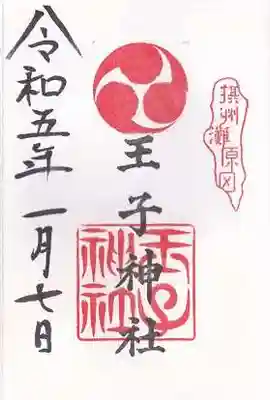 摂州灘原区
王子神社
王子神社
令和五年一月七日